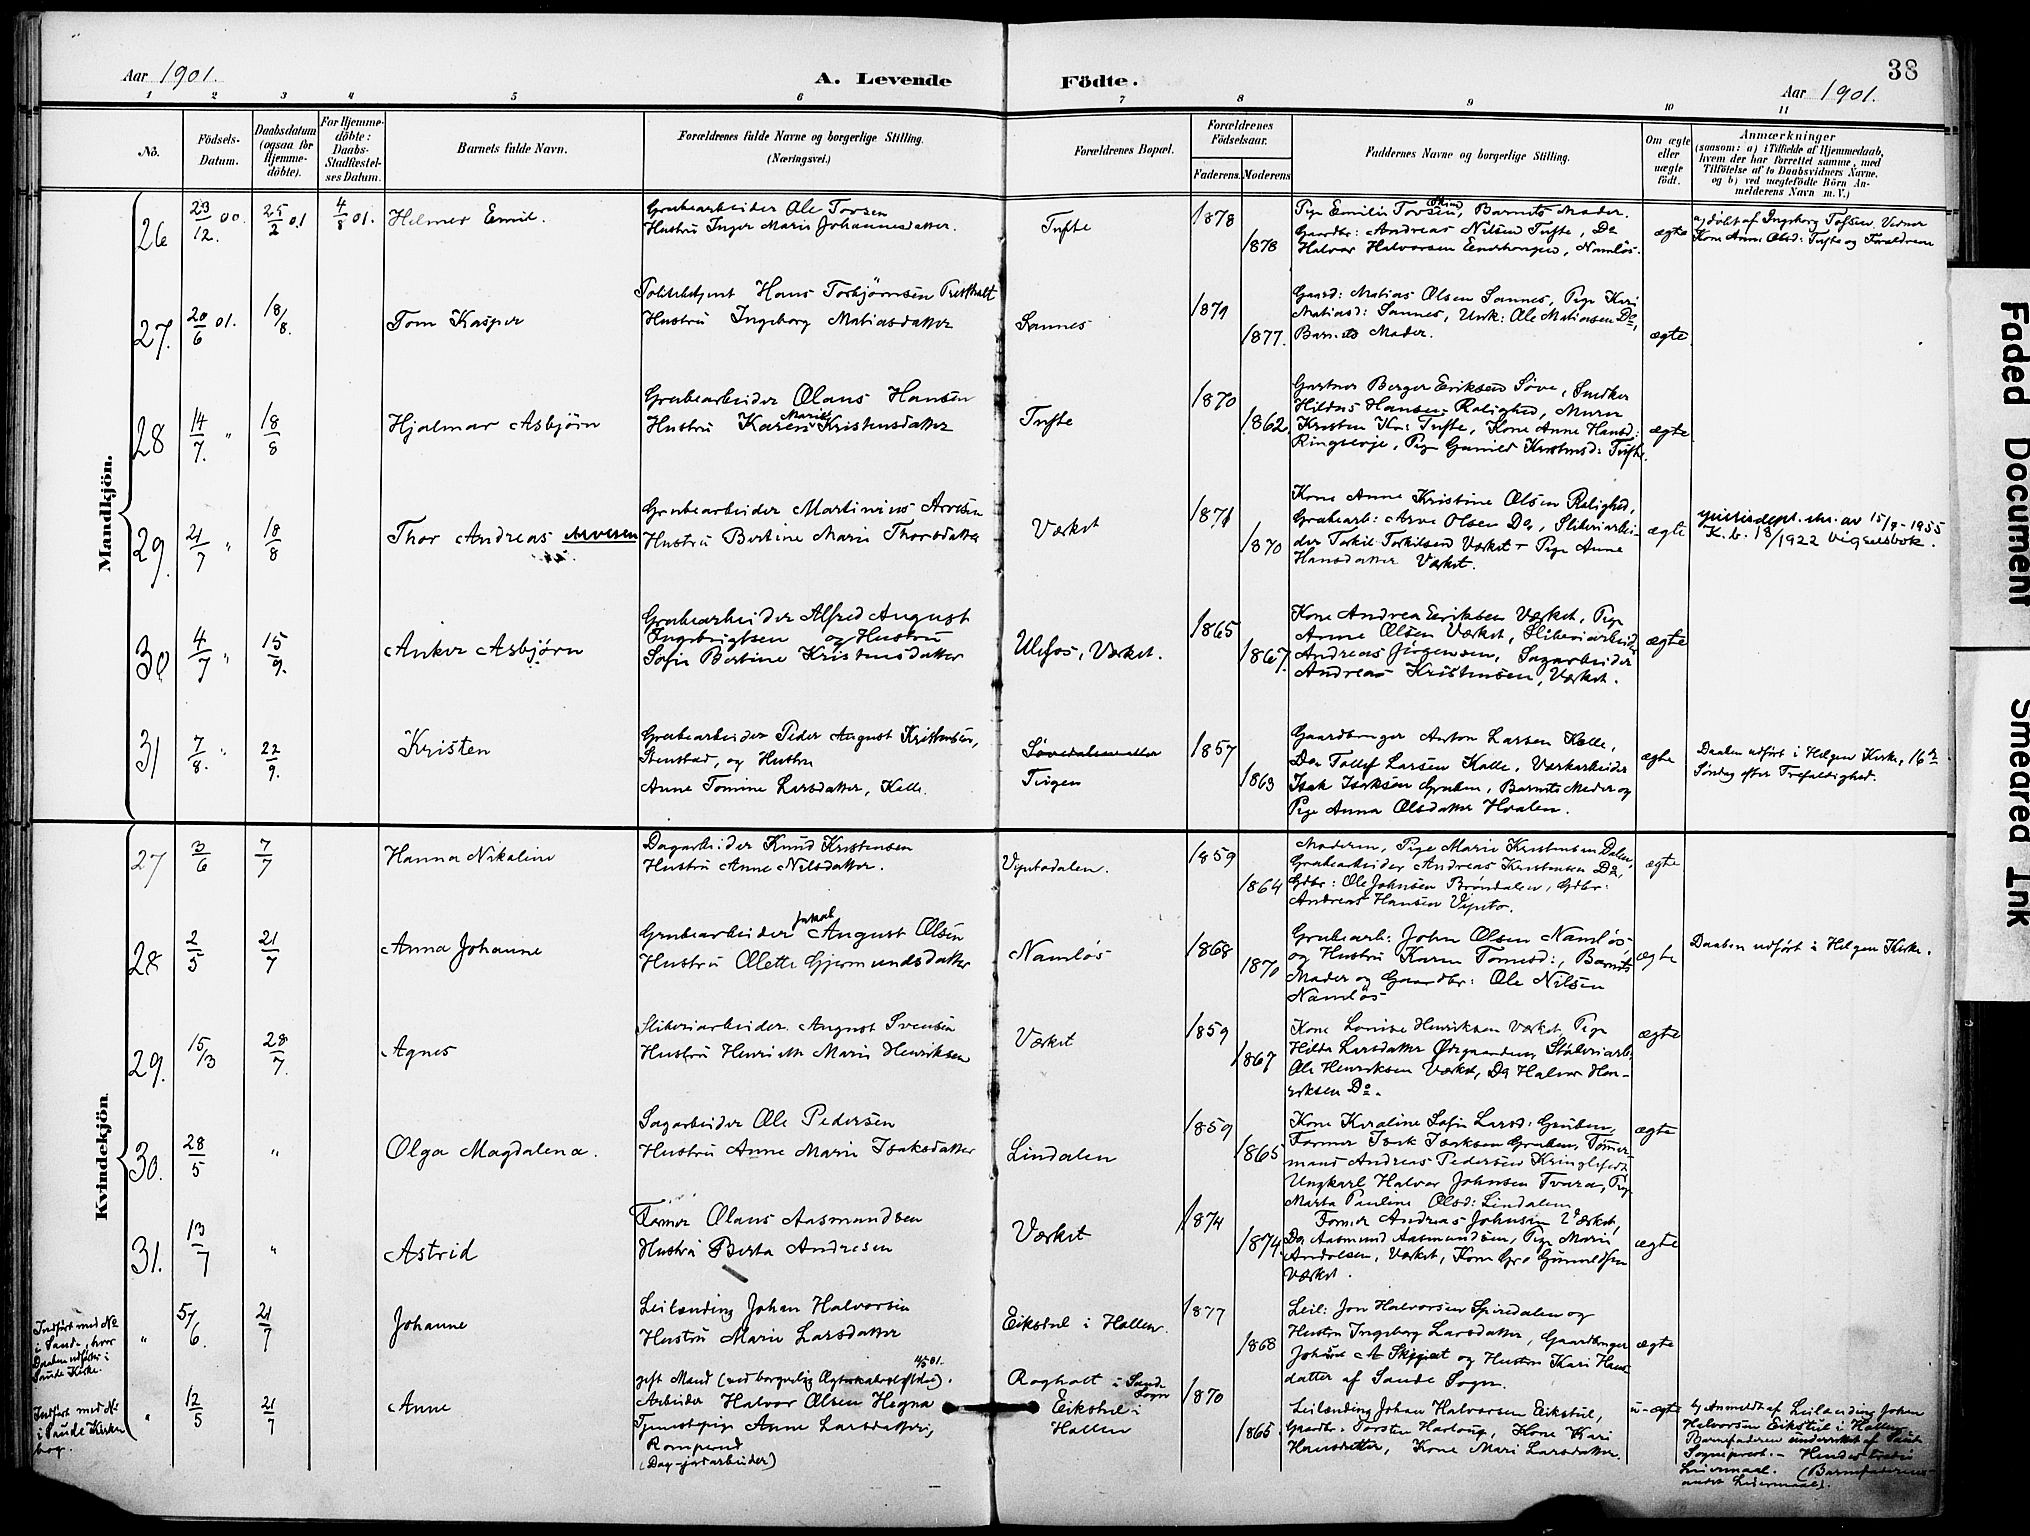 38
Aar 1901.
A. Levende
Födte.
Aar 1901.
1 2 3 4 5 6 7 8 9 10 11
No.
Födsels-
Datum.
Daabsdatum
(ogsaa for
Hjemme-
döbte).
For Hjemme-
döbte:
Daabs-
Stadfæstel-
ses Datum.
Barnets fulde Navn.
Forældrenes fulde Navne og borgerlige Stilling.
(Næringsvei.)
Forældrenes Bopæl.
Forældrenes
Födselsaar.
Faderens.
Moderens.
Faddernes Navne og borgerlige Stilling.
Om ægte
eller
uægte
födt.
Anmærkninger
(saasom: a) i Tilfælde af Hjemmedaab,
hvem der har forrettet samme, med
Tilföielse af to Daabsvidners Navne.
og b) ved uægtefödte Börn An-
melderens Navn m. V.)
Mandkjön.
26
23/12 00.
25/2 01
4/8 01.
Helmer Emil.
Grubearbeider Ole Tovsen
Hustru Inger Marie Johannesdatter.
Tufte
1878
1878
Pige Emilie Tovsen, Barnets Moder.
Gaardbr: Andreas Nilsen Tufte, Do
Halvor Halvorsen Namløs.
ægte
a) døbt af Ingeborg
Kone Anne Olsd: Tufte og Forældrene
27.
20/6 01.
18/8.
Tom Kasper
Hans Torbjørnsen
Hustru Ingeborg Matiasdatter
Sannes
1879
1877.
Gaard: Matias Olsen Sannes, Pige Kari
Matiasd: Sannes, Unk: Ole Matiasen Do,
Barnets Moder.
ægte
28
14/7. "
18/8
Hjalmar Asbjørn
Grubearbeider Olaus Hansen
Hustru Karen Marie Kristensdatter
Tufte
1870
1862
Gartner Berger Eriksen Søve, Snedker
Hildus Hansen Rolighed, Murer
Kristen Kr: Tufte, Kone Anne Hansd:
Ringsevje, Pige Gunild Kristensd: Tufte.
ægte
29.
21/7 "
18/8
Thor Andreas Arvesen
Grubearbeider Martinius Arvesen
Hustru Bertine Marie Thorsdatter
Værket
1871
1870
Kone Anne Kristine Olsen Rolighed,
Grubearb: Arve Olsen Do, Sliberiarbei-
der Torkil Torkilsen Værket – Pige Anne
Hansdatter Værket.
ægte
justisdept. skr. av 15/9-1955
K. b. 18/1922 vigselsbok.
30
4/7 "
15/9.
Anker Asbjørn
Grubearbeider Alfred August
Ingebrigtsen og Hustru
Sofie Bertine Kristensdatter
Ulefos, Værket.
1865
1867.
Kone Andrea Eriksen Værket, Pige
Anne Olsen Værket, Sliberiarbeider
Andreas Jörgensen, Sagarbeider
Andreas Kristensen, Værket.
ægte
31
7/8. "
22/9.
Kristen
Grubearbeider Peder August Kristensen,
Stenstad, og Hustru
Anne Tomine Larsdatter, Kelle.
Søvedalen eller
Tvigen
1857
1863
Gaardbruger Anton Larsen Kelle,
Do Tollef Larsen Kolle, Værkarbeider
Isak Isaksen Gruben, Barnets Moder og
Pige Anna Olsdatter Hvalen.
ægte
Daaben udført i Helgen Kirke, 16de
Søndag efter Trefoldighed.
Kvindekjön
27
3/6
7/7
Hanna Nikoline
Dagarbeider Knud Kristensen
Hustru Anne Nilsdatter.
Vipetodalen.
1859
1864
Moderen, Pige Marie Kristensen Dalen,
Grubearbeider Andreas Kristensen Do,
Gdbr: Ole Johnsen Brøndalen, Gdbr:
Andreas Hansen Vipeto.
ægte
28
2/5
21/7
Anna Johanne
Grubearbeider Jakob August Olsen
Hustru Olette Gjermundsdatter
Namløs
1868
1870
Grubearb: John Olsen Namløs,
og Hustru Karen Tomesd:, Barnets
Moder og Gaardbr: Ole Nilsen
Namløs
ægte
Daaben udført i Helgen Kirke.
29.
15/3
28/7.
Agnes
Sliberiarbeider August Svensen
Hustru Henriette Marie Henriksen
Værket
1859
1867
Kone Lovise Henriksen Værket, Pige
Hilda Larsdatter Ødegaarden, Sliberiarb.
Ole Henriksen Værket, Do Halvor Hen-
riksen Do.
ægte
30.
28/5
"
Olga Magdalena.
Sagarbeider Ole Pedersen
Hustru Anne Marie Isaksdatter
Lindalen
1859
1865
Kone Karoline Sofie Larsd: Gruben,
Former Isak Isaksen Gruben, Tømmer-
mand Andreas Pedersen
Ungkarl Halvor Johnsen Tvara, Pige
Marta Pauline Olsd: Lindalen
ægte
31.
13/7
"
Astrid
Former Olaus Aasmundsen
Hustru Berta Andresen
Værket
1874
1874
Former Andreas Johnsen Værket,
Do Aasmund Aasmundsen, Pige Marie
Andresen, Værket, Kone Gro Gunnulfsen
Værket.
ægte
Indført med No
i Saude, hvor
Daaben udførtes i
Saude Kirke.
"
5/6
21/7
Johanne
Leilænding Johan Halvorsen
Hustru Marie Larsdatter
Eikstul i Hallen.
1877
1868
Leil: Jon Halvorsen Spiredalen og
Hustru Ingeborg Larsdatter, Gaardbruger
og Hustru Kari Hans-
datter af Saude Sogn.
ægte
Indført med No
i Saude Kirke
bog.
"
12/5
21/7
Anne
gift Mand (ved borgerlig
Arbeider Halvor Olsen Hegna
Tjenestepige Anne Larsdatter,
(Dag-jordarbeider)
i Saude
Sogn
Eikstul i
Hallen
1870
1865
Leilænding Johan Halvorsen Eikstul,
Gaardbr: Torsten Kone Kari
Hansdatter, Kone Mari Larsdatter.
u-ægte
b) Anmeldt af Leilænding Johan
Halvorsen Eikstul i Hallen
Barnefaderen underrettet af Saude
Sogneprest. – Hendes tredie
Leiermaal. (Barnefaderens
andet Leiermaal).
Faded Document
Smeared Ink